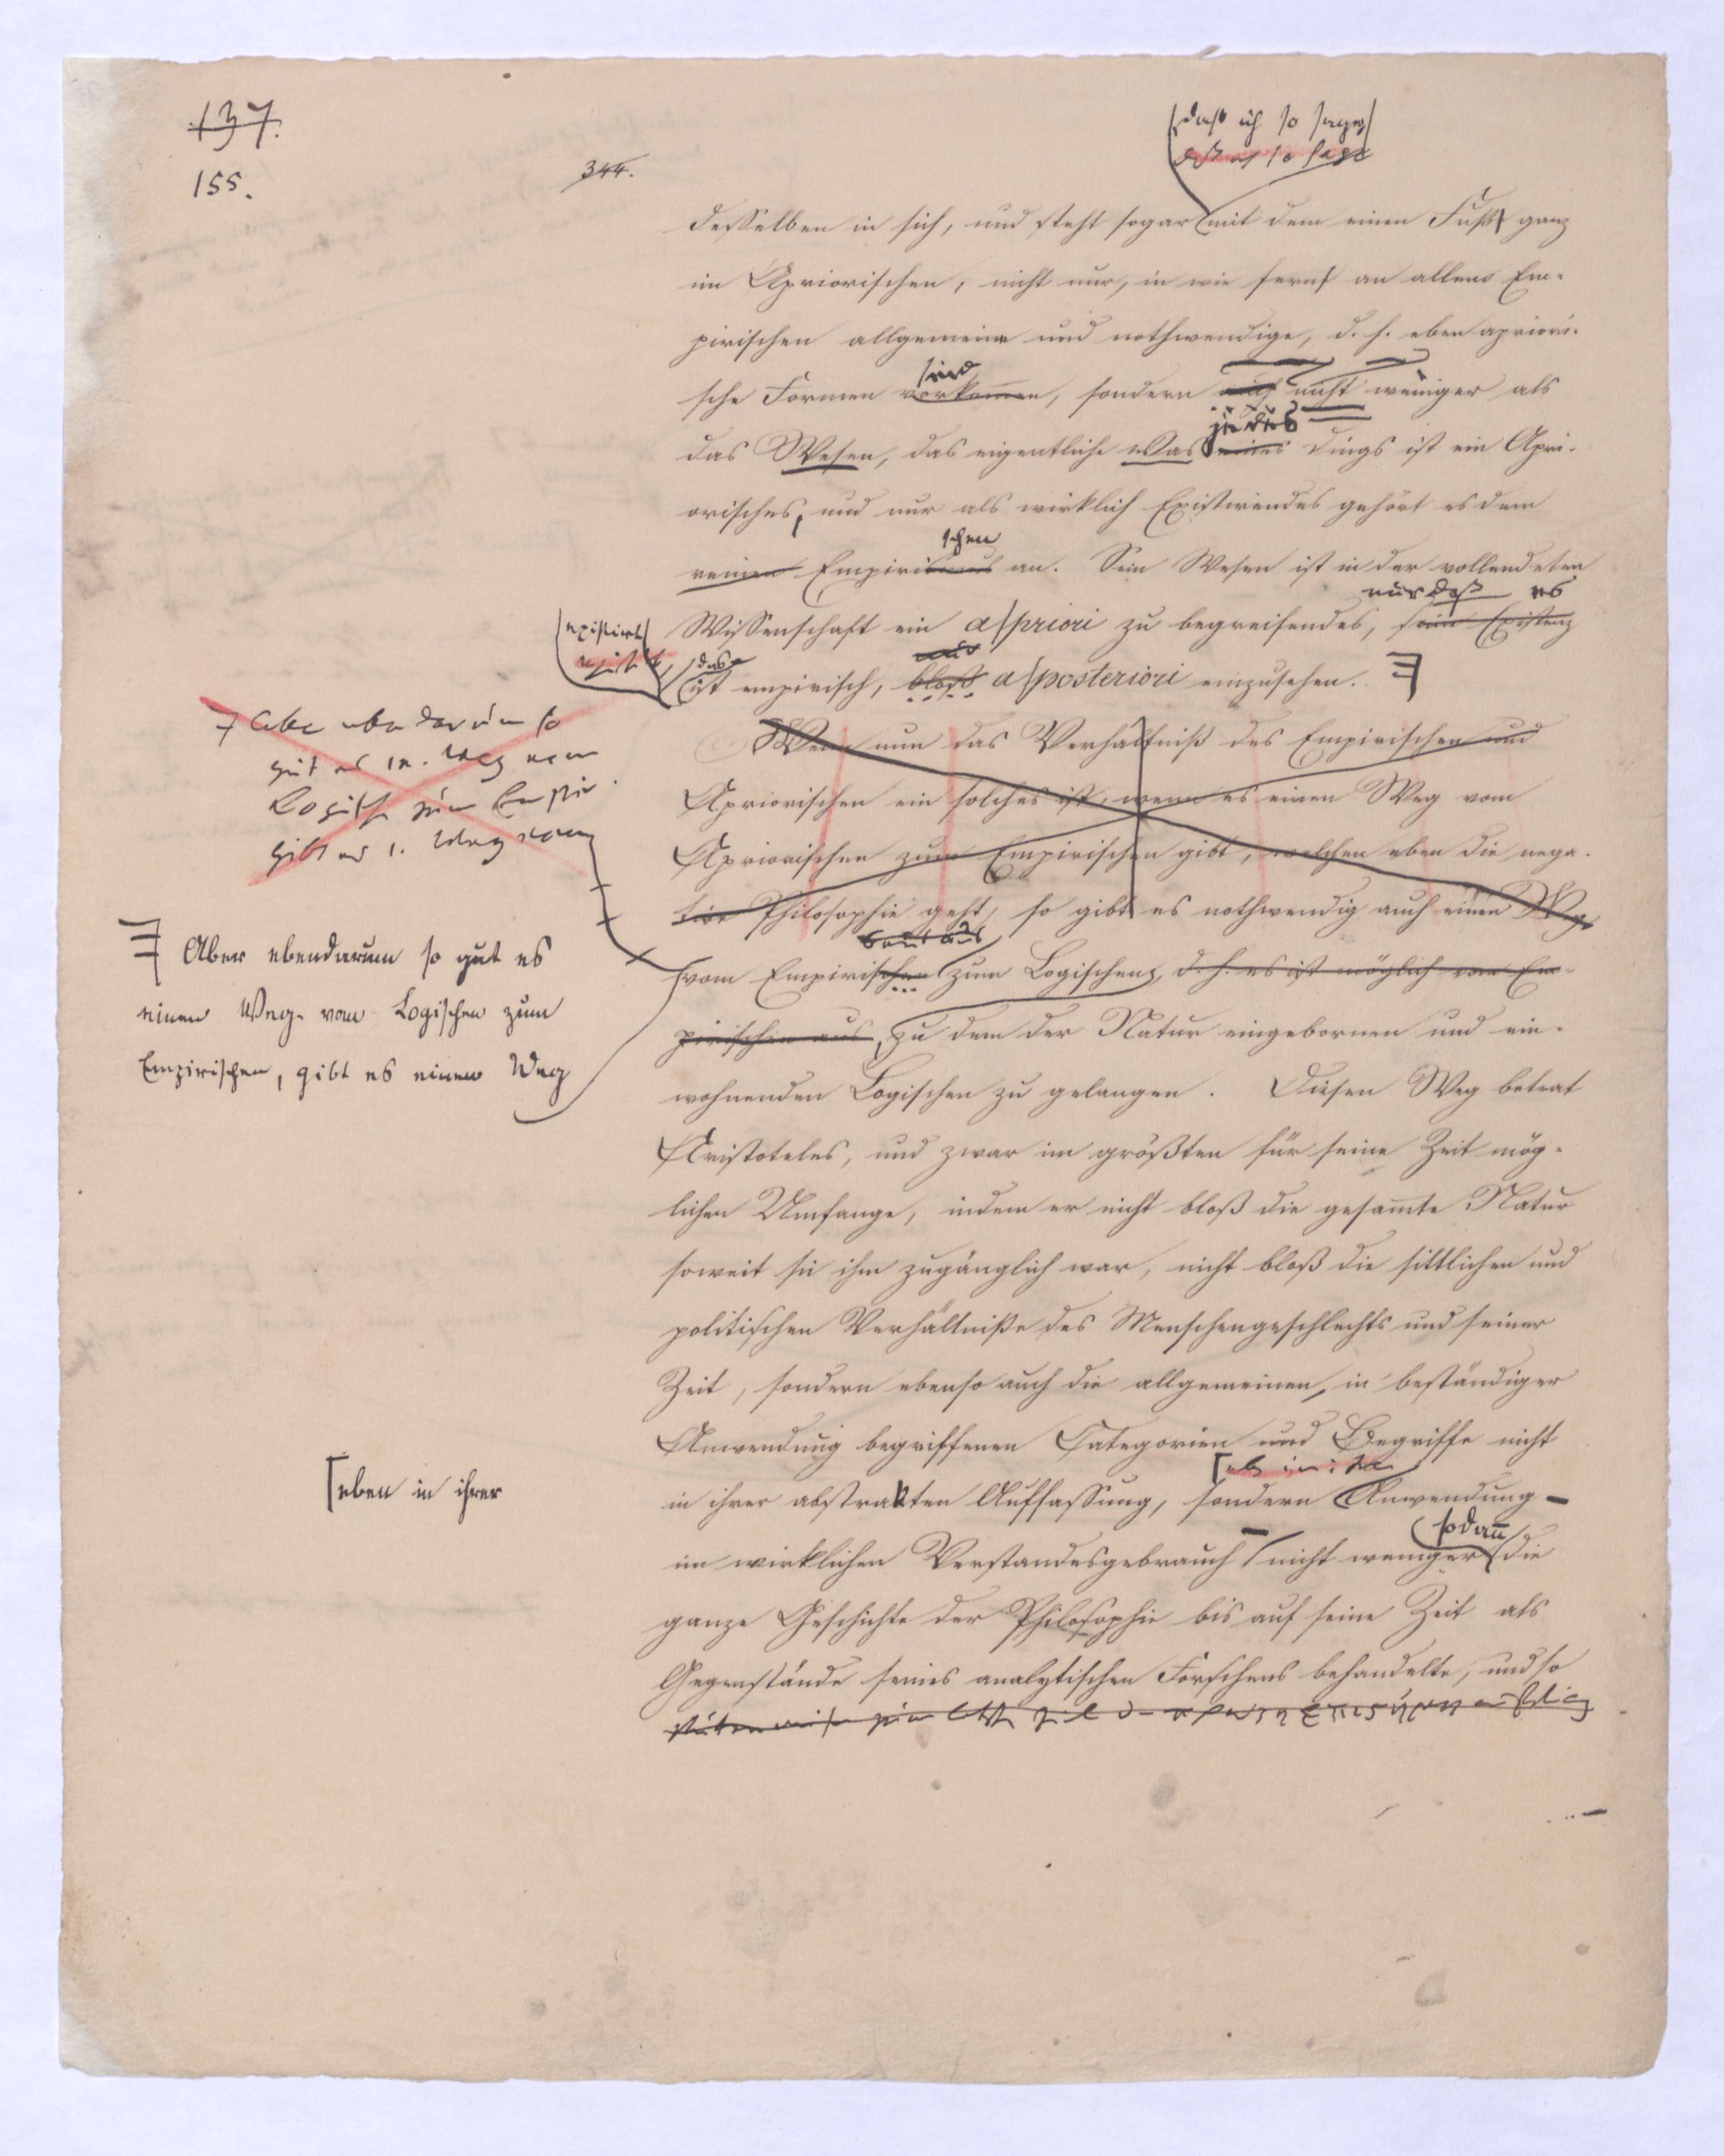 137.
155.
344.
(daß ich so sage)
daß ich so sage
desselben in sich, und steht sogar mit dem einen Fuß ganz
im Apriorischen, nicht nur, in wie fern an allem Em-
pirischen allgemeine und nothwendige, d. h. eben apriori-
sind
sche Formen vorkom̄en, sondern auch nicht weniger als
jedes
das Wesen, das eigentliche Was eines Dings ist ein Apri-
orisches, und nur als wirklich Existirendes gehört es dem
schen
reinen Empirismus an. Sein Wesen ist in der vollendeten
nur daß es
Wissenschaft ein a priori zu begreifendes, sein Existenz
(existirt)
das
ist empirisch, bloß a posteriori einzusehen.
Aber eben darum so
gut es 1n. Weg vom
Logisch zum Empir.
gibt es 1. Weg vom
Wenn nun das Verhältniß des Empirischen und
Apriorischen ein solches ist, wenn es einen Weg vom
Apriorischen zum Empirischen gibt, welchen eben die nega-
tive Philosophie geht, so gibt es nothwendig auch einen Weg
Aber ebendarum so gut es
einen Weg vom Logischen zum
Empirischen, gibt es einen Weg
vom Empirischen zum Logischen, d. h. es ist möglich vom Em-
pirischen aus, zu dem der Natur eingebornen und ein-
wohnenden Logischen zu gelangen. Diesen Weg betrat
Aristoteles, und zwar im größten für seine Zeit mög-
lichen Umfange, indem er nicht bloß die gesam̄te Natur
soweit sie ihm zugänglich war, nicht bloß die sittlichen und
politischen Verhältniße des Menschengeschlechts und seiner
Zeit, sondern ebenso auch die allgemeinen, in beständiger
Anwendung begriffenen Categorien und Begriffe nicht
eben in ihrer
in ihrer abstrakten Auffassung, sondern Anwendung –
sodañ
im wirklichen Verstandesgebrauch nicht weniger die
ganze Geschichte der Philosophie bis auf seine Zeit als
Gegenstände seines analytischen Forschens behandelte, und so